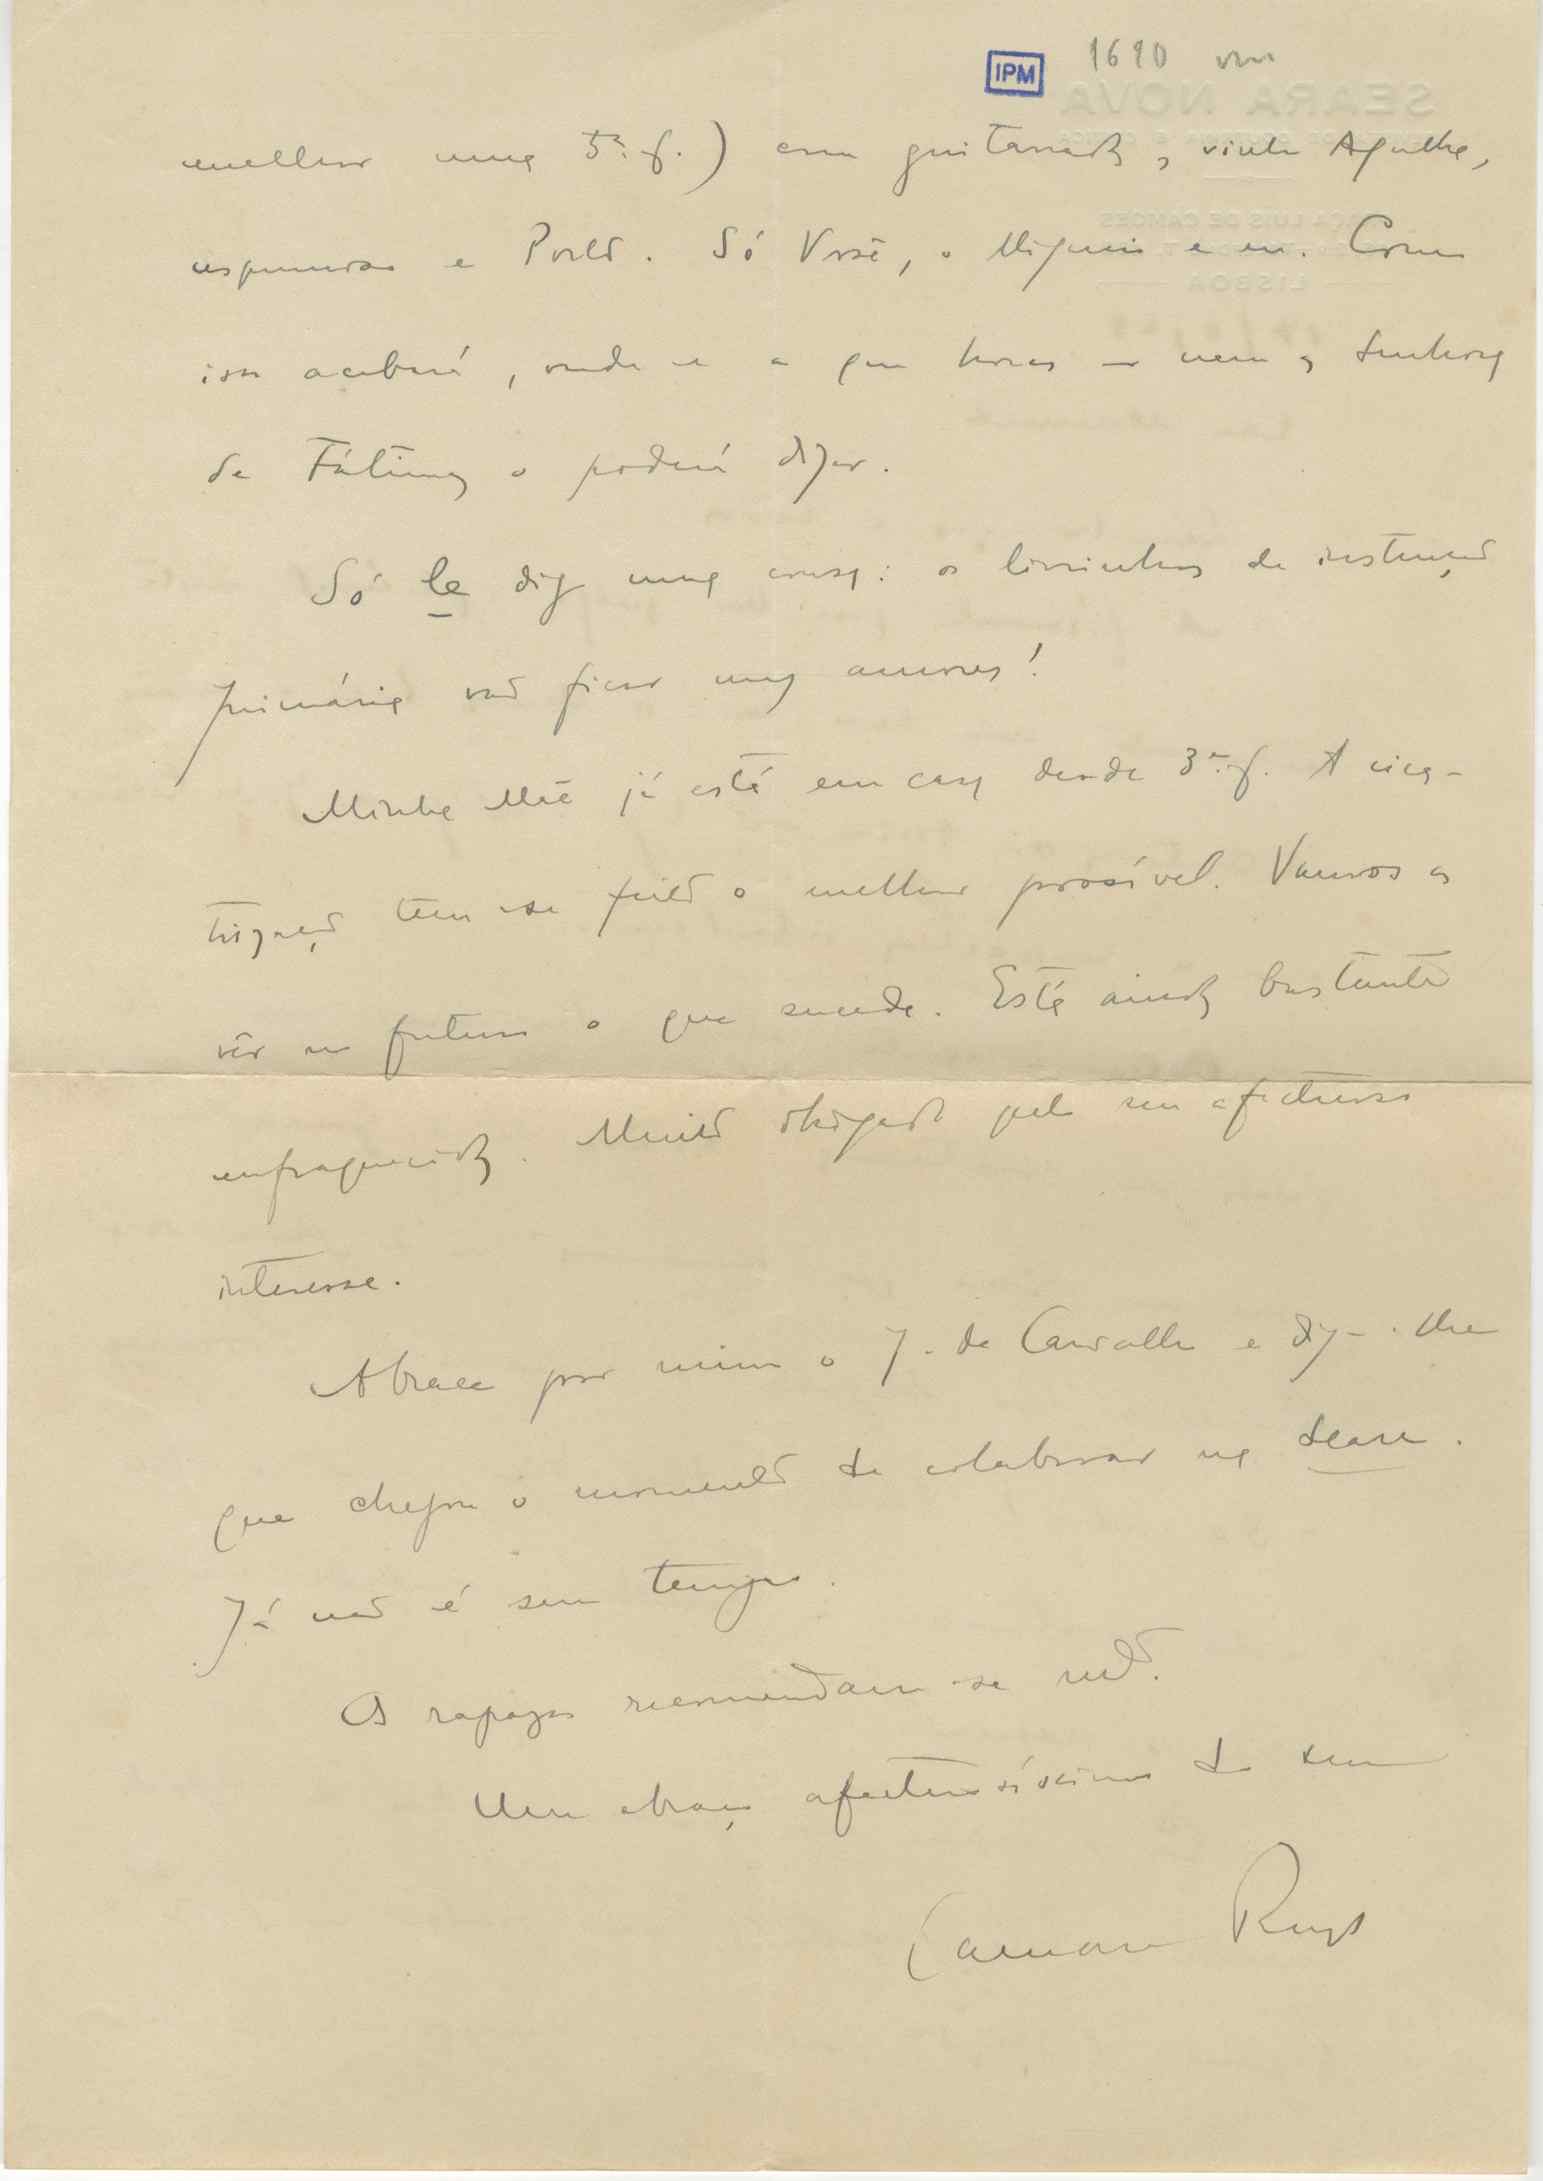 IPM 1690 vm
SEARA NOVA
LISBOA
melhor uma 5ª. f.) com guitarrada, vinho Agulha,
espumoso e Porto. Só Você, o Migueis e eu. Como
isso acabará, onde e a que horas – nem a Senhora
de Fátima o poderá dizer.
Só le digo uma cousa: os livrinhos de instrução
primária vão ficar uns amores!
Minha Mãe já está em casa desde 3ª. f. A cica-
trização tem-se feito o melhor possível. Vamos a
vêr no futuro o que sucede. Está ainda bastante
enfraquecida. Muito obrigado pelo seu afectuoso
interesse.
Abrace por mim o J. de Carvalho e diga-lhe
que chegou o momento de colaborar na Seara.
Já não é sem tempo.
Os rapazes recomendam-se mtº.
Um abraço afectuosíssimo do seu
Camara Reys